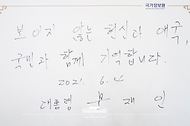 국가정보원
보이지 않는 헌신과 애국,
국민과 함께 기억합니다.
2021. 6. 4
대통령 문재인